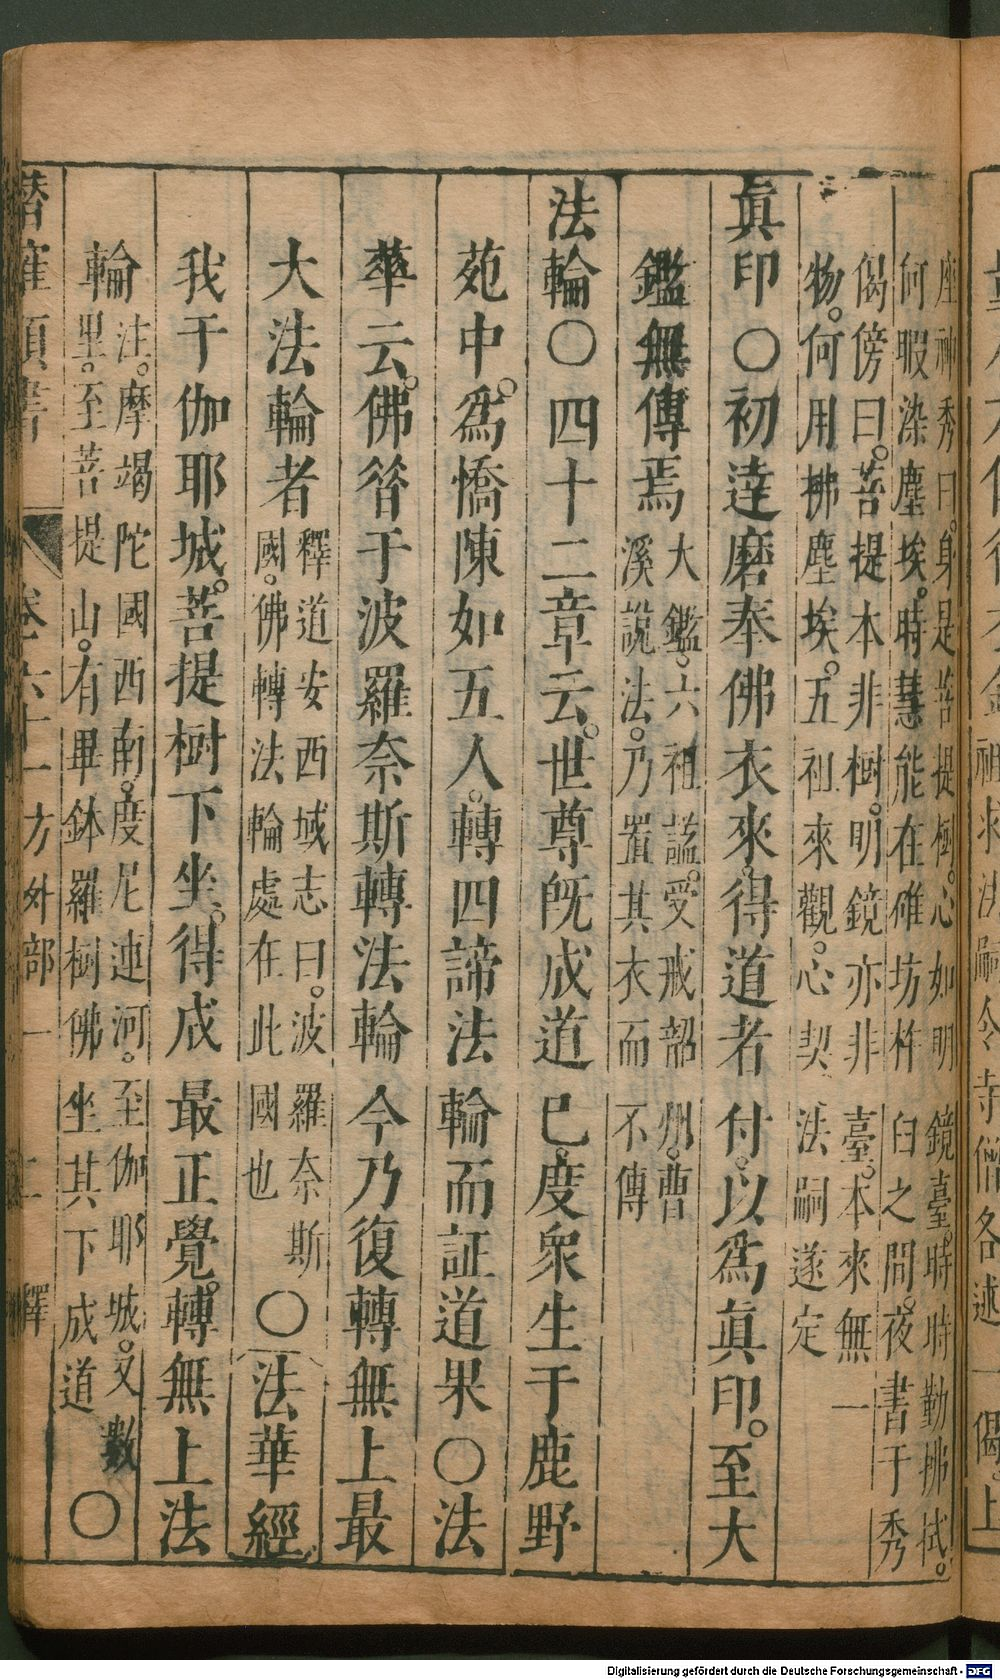 座神秀曰。身是菩提樹。心如明鏡臺。時時勤拂拭。
何暇染塵埃。時慧能在碓坊杵臼之間。夜書于秀
偈傍曰。菩提本非樹。明鏡亦非臺。本來無一
物。何用拂塵埃。五祖來觀。心契法嗣遂定
眞印○初達磨奉佛衣來。得道者付。以爲眞印。至大
鑑無傳焉
大鑑。六祖謚。受戒韶州。曹
溪說法。乃置其衣而不傳
法輪○四十二章云。世尊旣成道巳。度衆生于鹿野
苑中。爲憍陳如五人。轉四諦法輪而証道果○法
華云。佛昝于波羅奈斯轉法輪今乃復轉無上最
大法輪者
釋道安西域志曰。波羅奈斯
國。佛轉法輪處在此國也
○法華經
我于伽耶城。菩提樹下坐。得成最正覺。轉無上法
輪
注。摩竭陀國西南。度尼連河。至伽耶城。又數
里。至菩提山。有畢鉢羅樹佛坐其下成道
○
潛確類書 卷六十一 方外部一 二 釋
Digitalisierung gefördert durch die Deutsche Forschungsgemeinschaft - DFG